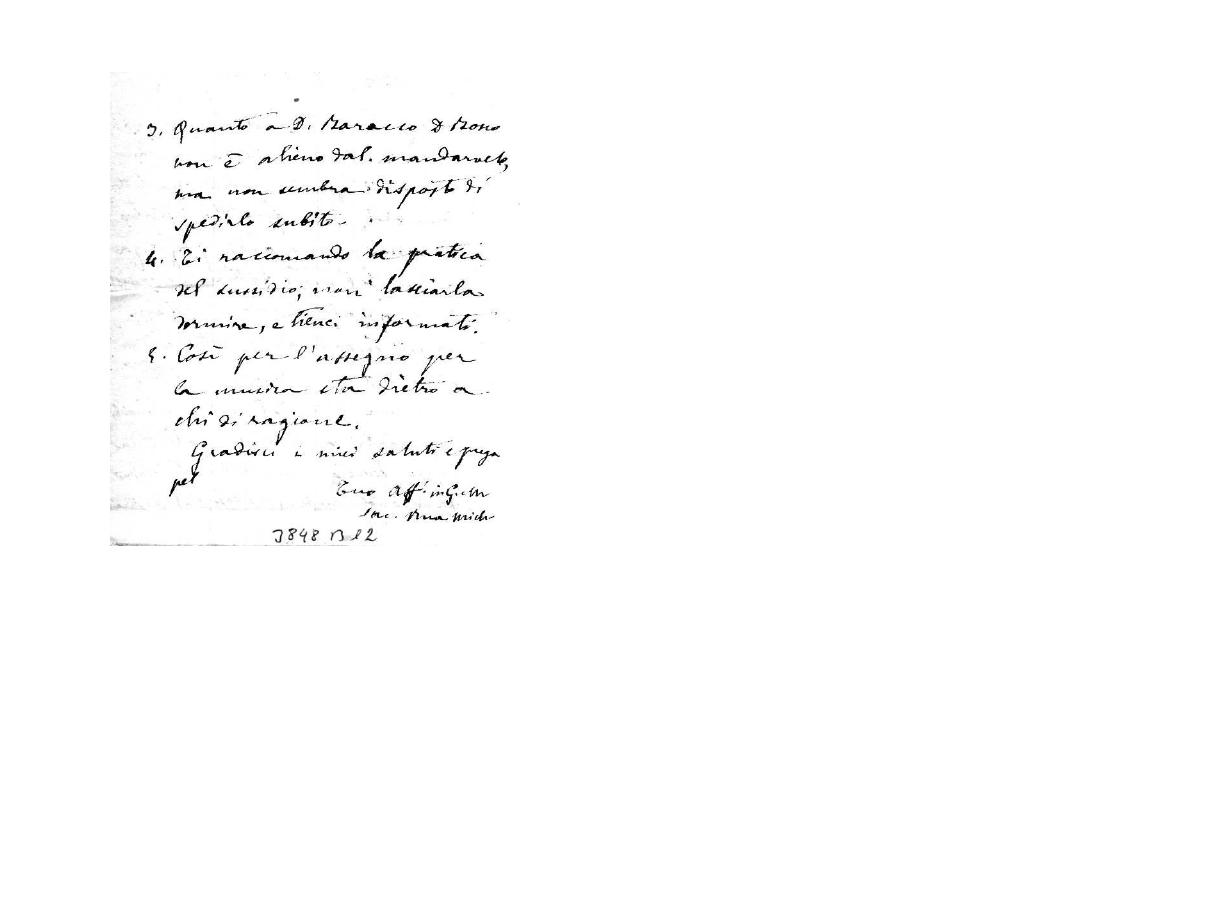 3. Quanto a D. Baracco D Bosco
non è alieno dal mandarvelo,
ma non sembra disposto di
spedirlo subito.
4. Ti raccomando la pratica
del sussidio; non lasciarla
dormire, e tienci informati.
5. Così per l'assegno per
la musica sta dietro a
chi di ragione.
Gradisci i miei saluti e prega
pel
Tuo Aff. in G. e M
Sac. Rua Mich
3848 B 12